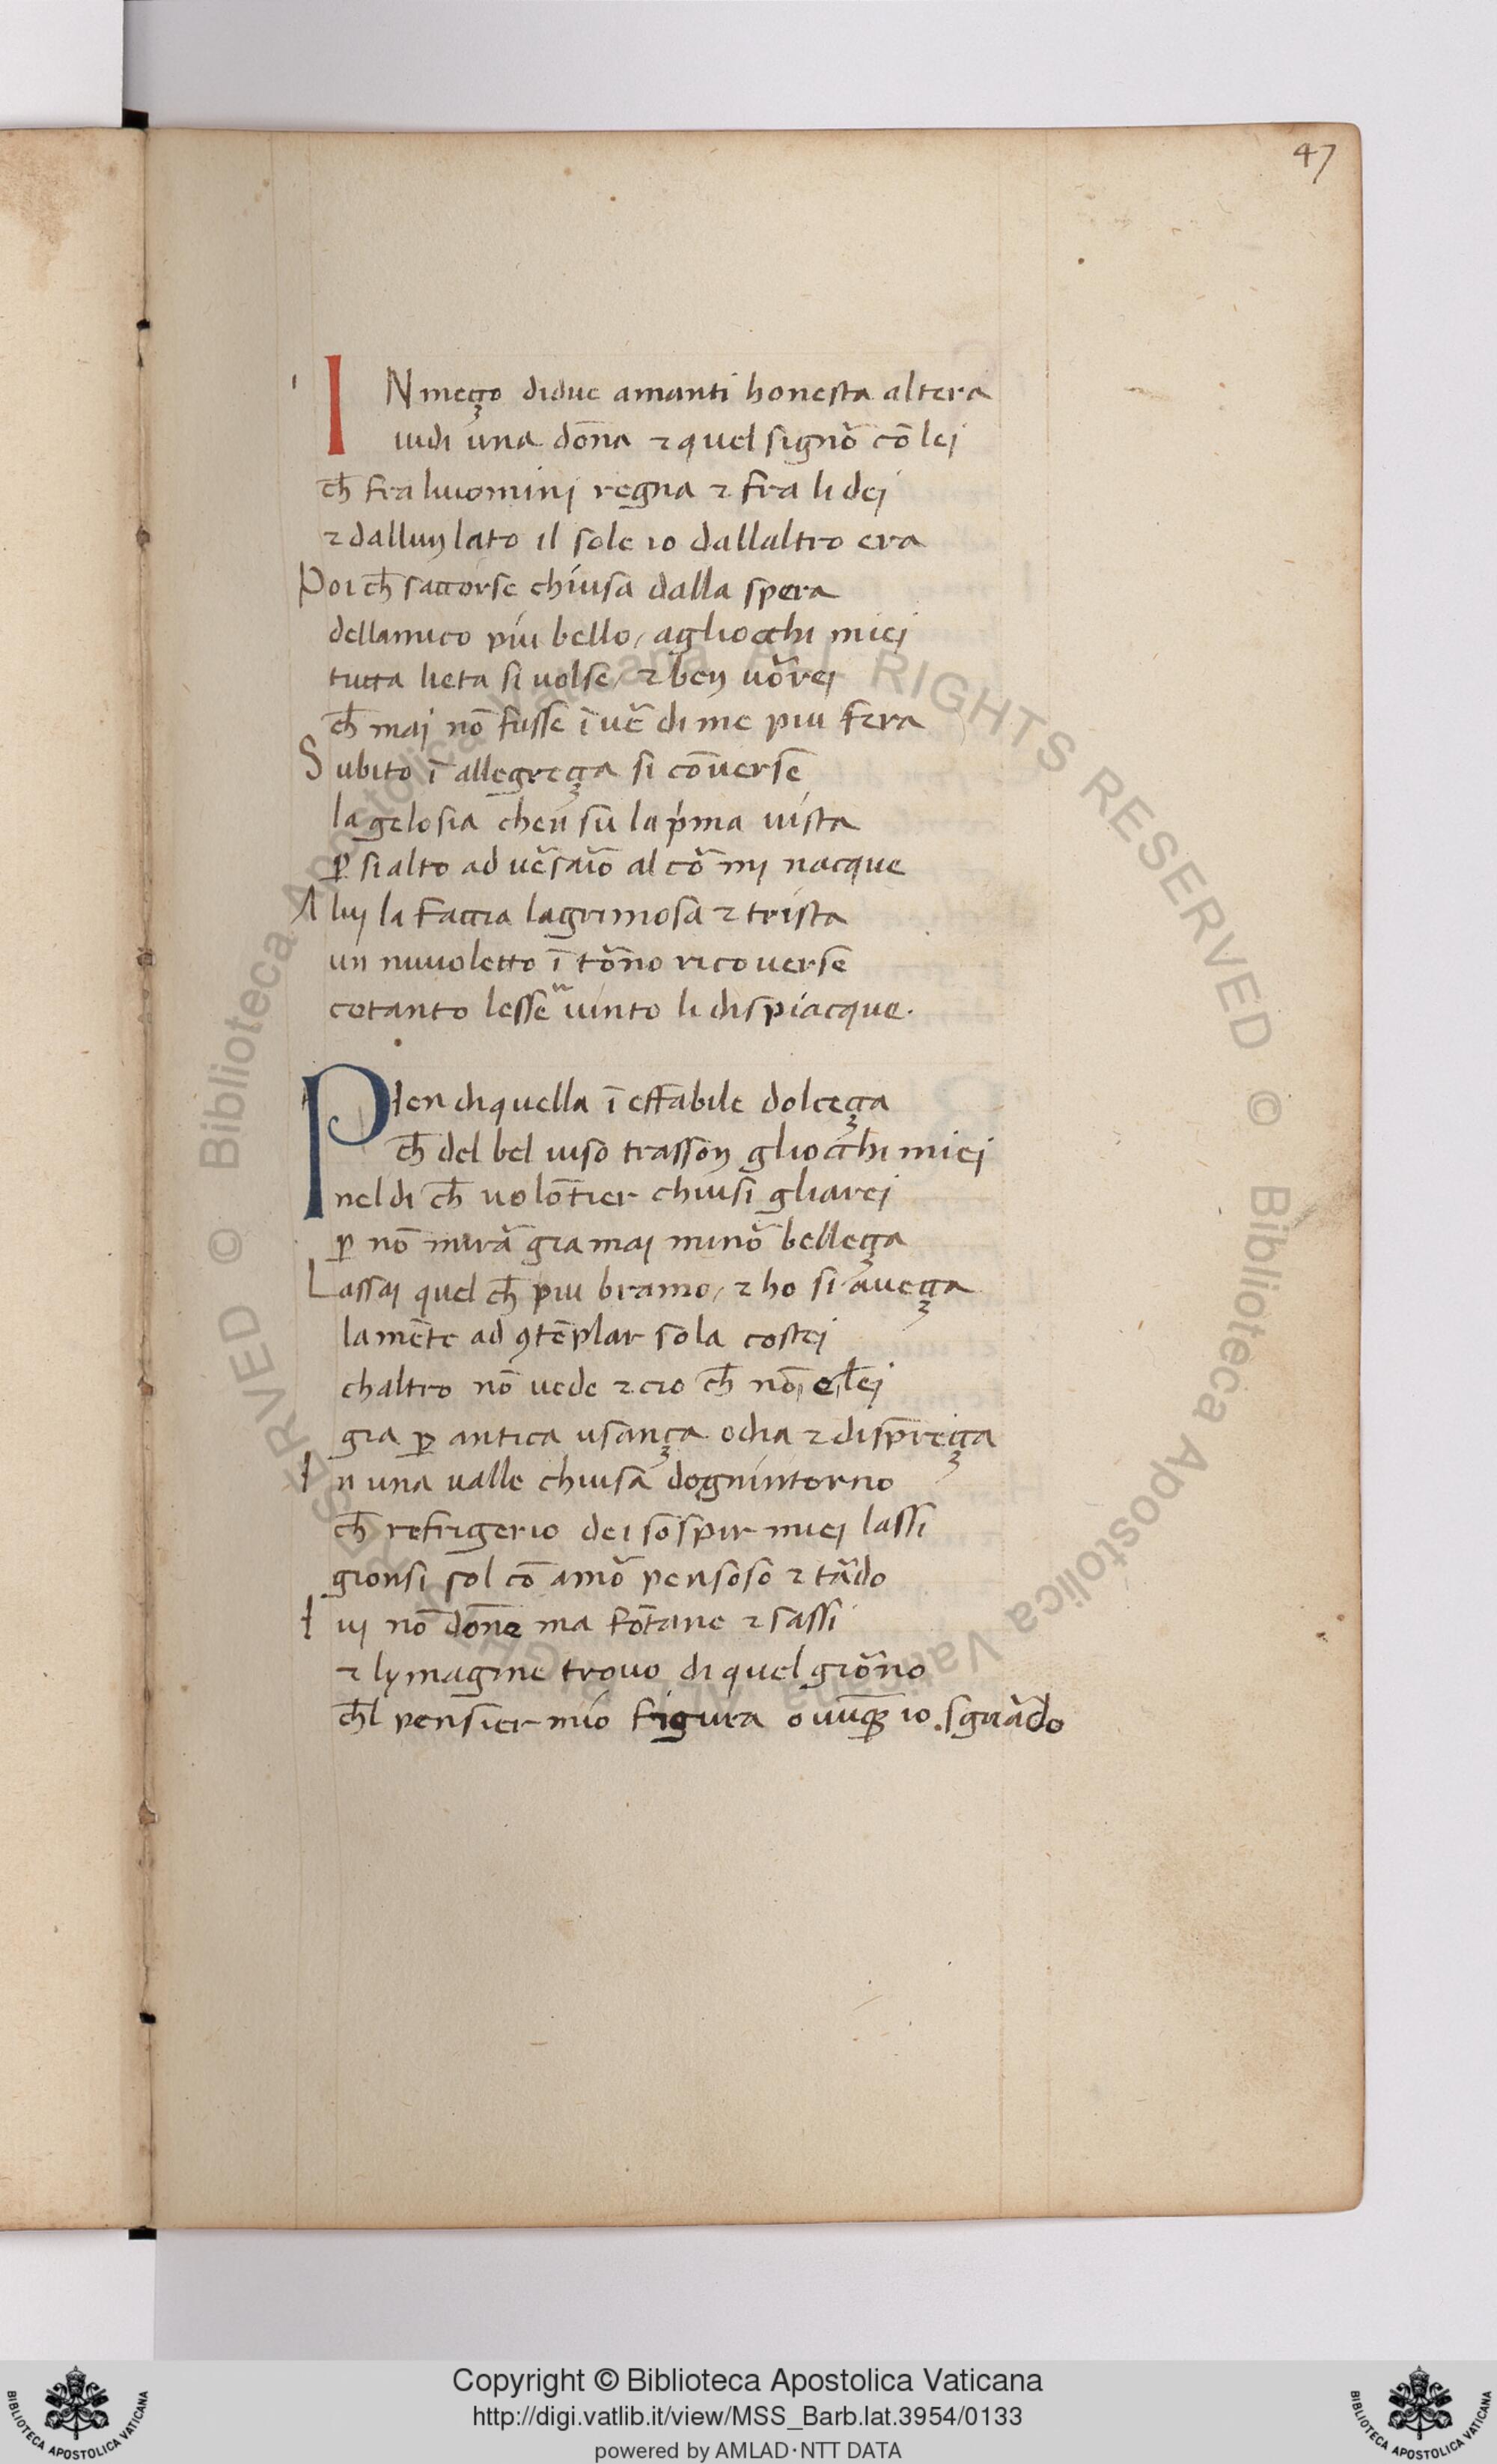 47
IN meço didue amanti honesta altera
uidi una dōna ⁊ quel signō cō lej
ch̄ fra luominj regna ⁊ fra li dej
⁊ dallun lato il sole io dallaltro era
Poi ch̄ saccorse chiusa dalla spera
dellamico piu bello / agliocchi miej
tucta lieta si uolse / ⁊ ben uōrei
ch̄ maj nō fusse ī uē di me piu fera
Subito ī allegreça si cōuerse
la gelosia chen su la pima uista
ꝑ si alto aduēsaiō al cō mj nacque
A luj la faccia lagrimosa ⁊ trista
un nuuoletto ī tōno ricouerse
cotanto lesse uinto li dispiacque.
Pien diquella ī effabile dolceça
ch̄ del bel uiso trasson gliocchi miej
nel di ch̄ uolōtier chiusi gliarej
ꝑ nō mirā gia maj minō belleça
Lassaj quel ch̄ piu bramo / ⁊ ho si aueça
la mēte ad ꝯtēplar sola costej
chaltro nō uede ⁊ cio ch̄ nō e lej
gia ꝑ antica usança odia ⁊ dispreça
In una ualle chiusa dognintorno
ch̄ refrigerio dei sospir miej lassi
gionsi sol cō amō pensoso ⁊ tādo
Iuj nō dōne ma fōtane ⁊ sassi
⁊ lymagine trouo di quel giōno
ch̄l pensier mio figura ouunꝙ io sguādo
© Biblioteca Apostolica Vaticana ALL RIGHTS RESERVED © Biblioteca Apostolica Vaticana ALL RIGHTS RESERVED
Copyright © Biblioteca Apostolica Vaticana
http://digi.vatlib.it/view/MSS_Barb.lat.3954/0133
powered by AMLAD·NTT DATA
BIBLIOTECA APOSTOLICA VATICANA
BIBLIOTECA APOSTOLICA VATICANA